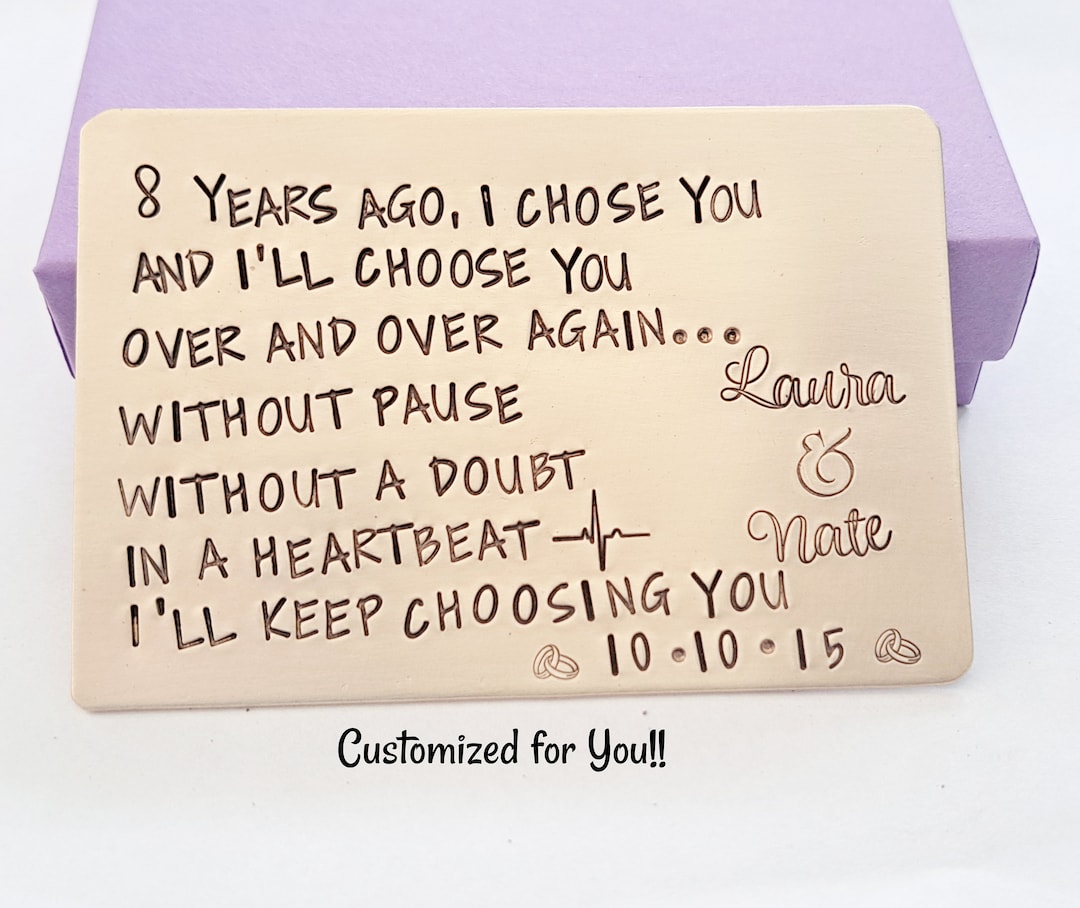 8 YEARS AGO, I CHOSE YOU
AND I'LL CHOOSE YOU
OVER AND OVER AGAIN...
WITHOUT PAUSE
WITHOUT A DOUBT
IN A HEARTBEAT
I'LL KEEP CHOOSING YOU
Laura
&
Nate
10•10•15
Customized for You!!